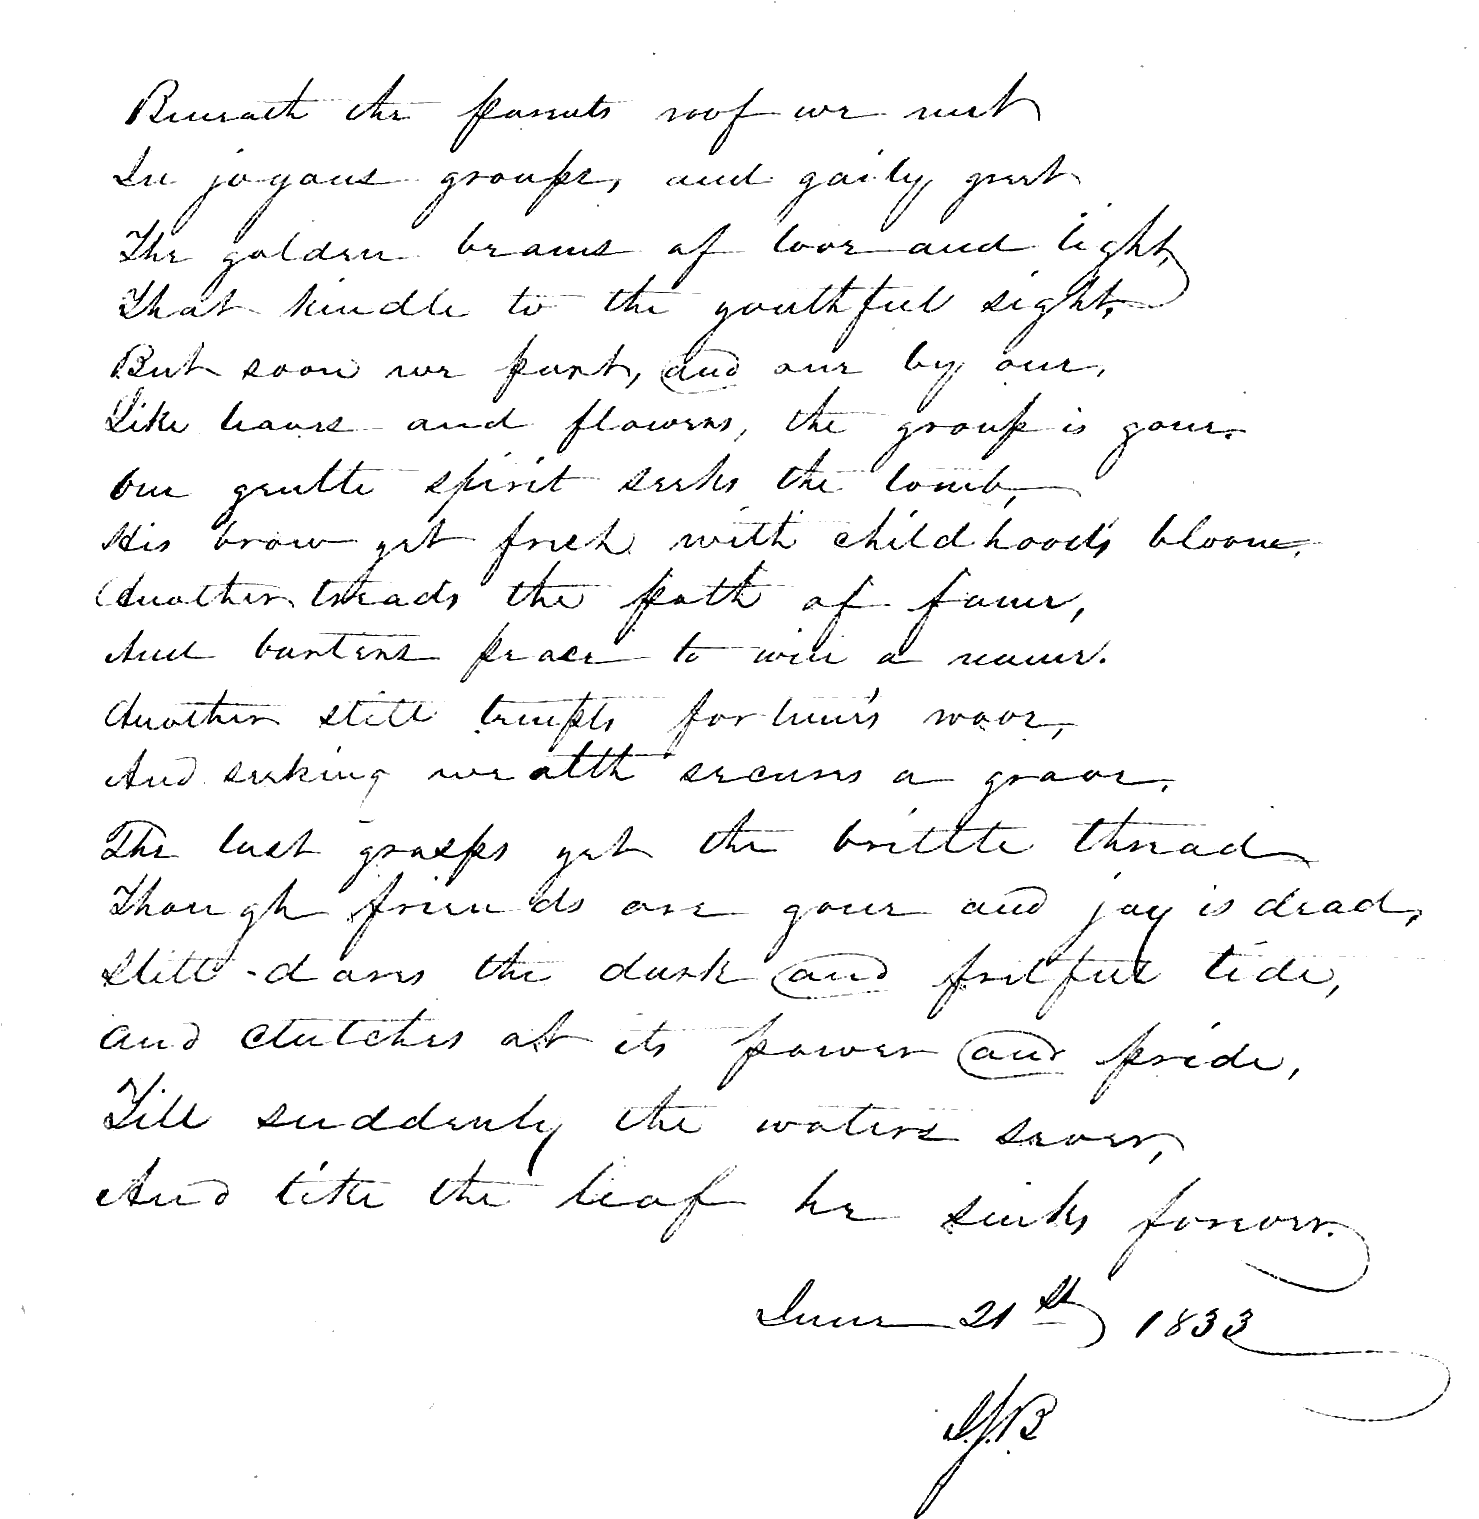 Beneath the parents roof we meet
In joyous groups, and gaily greet
The golden beams of love and light,
That kindle to the youthful sight.
But soon we part, and one by one,
Like leaves and flowers, the group is gone.
One gentle spirit seeks the tomb,
His brow yet fresh with childhood's bloom.
Another treads the path of fame,
And barters peace to win a name.
Another still tempts fortune's wave,
And seeking wealth secures a grave.
The last grasps yet the brittle thread
Though friends are gone and joy is dead,
Still dares the dark and fretful tide,
And clutches at its power and pride,
Till suddenly the waters sever,
And like the leaf he sinks forever.
June 21st 1833